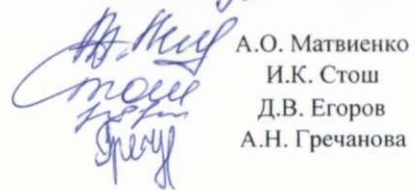 А.О. Матвиенко
И.К. Стош
Д.В. Егоров
А.Н. Гречанова